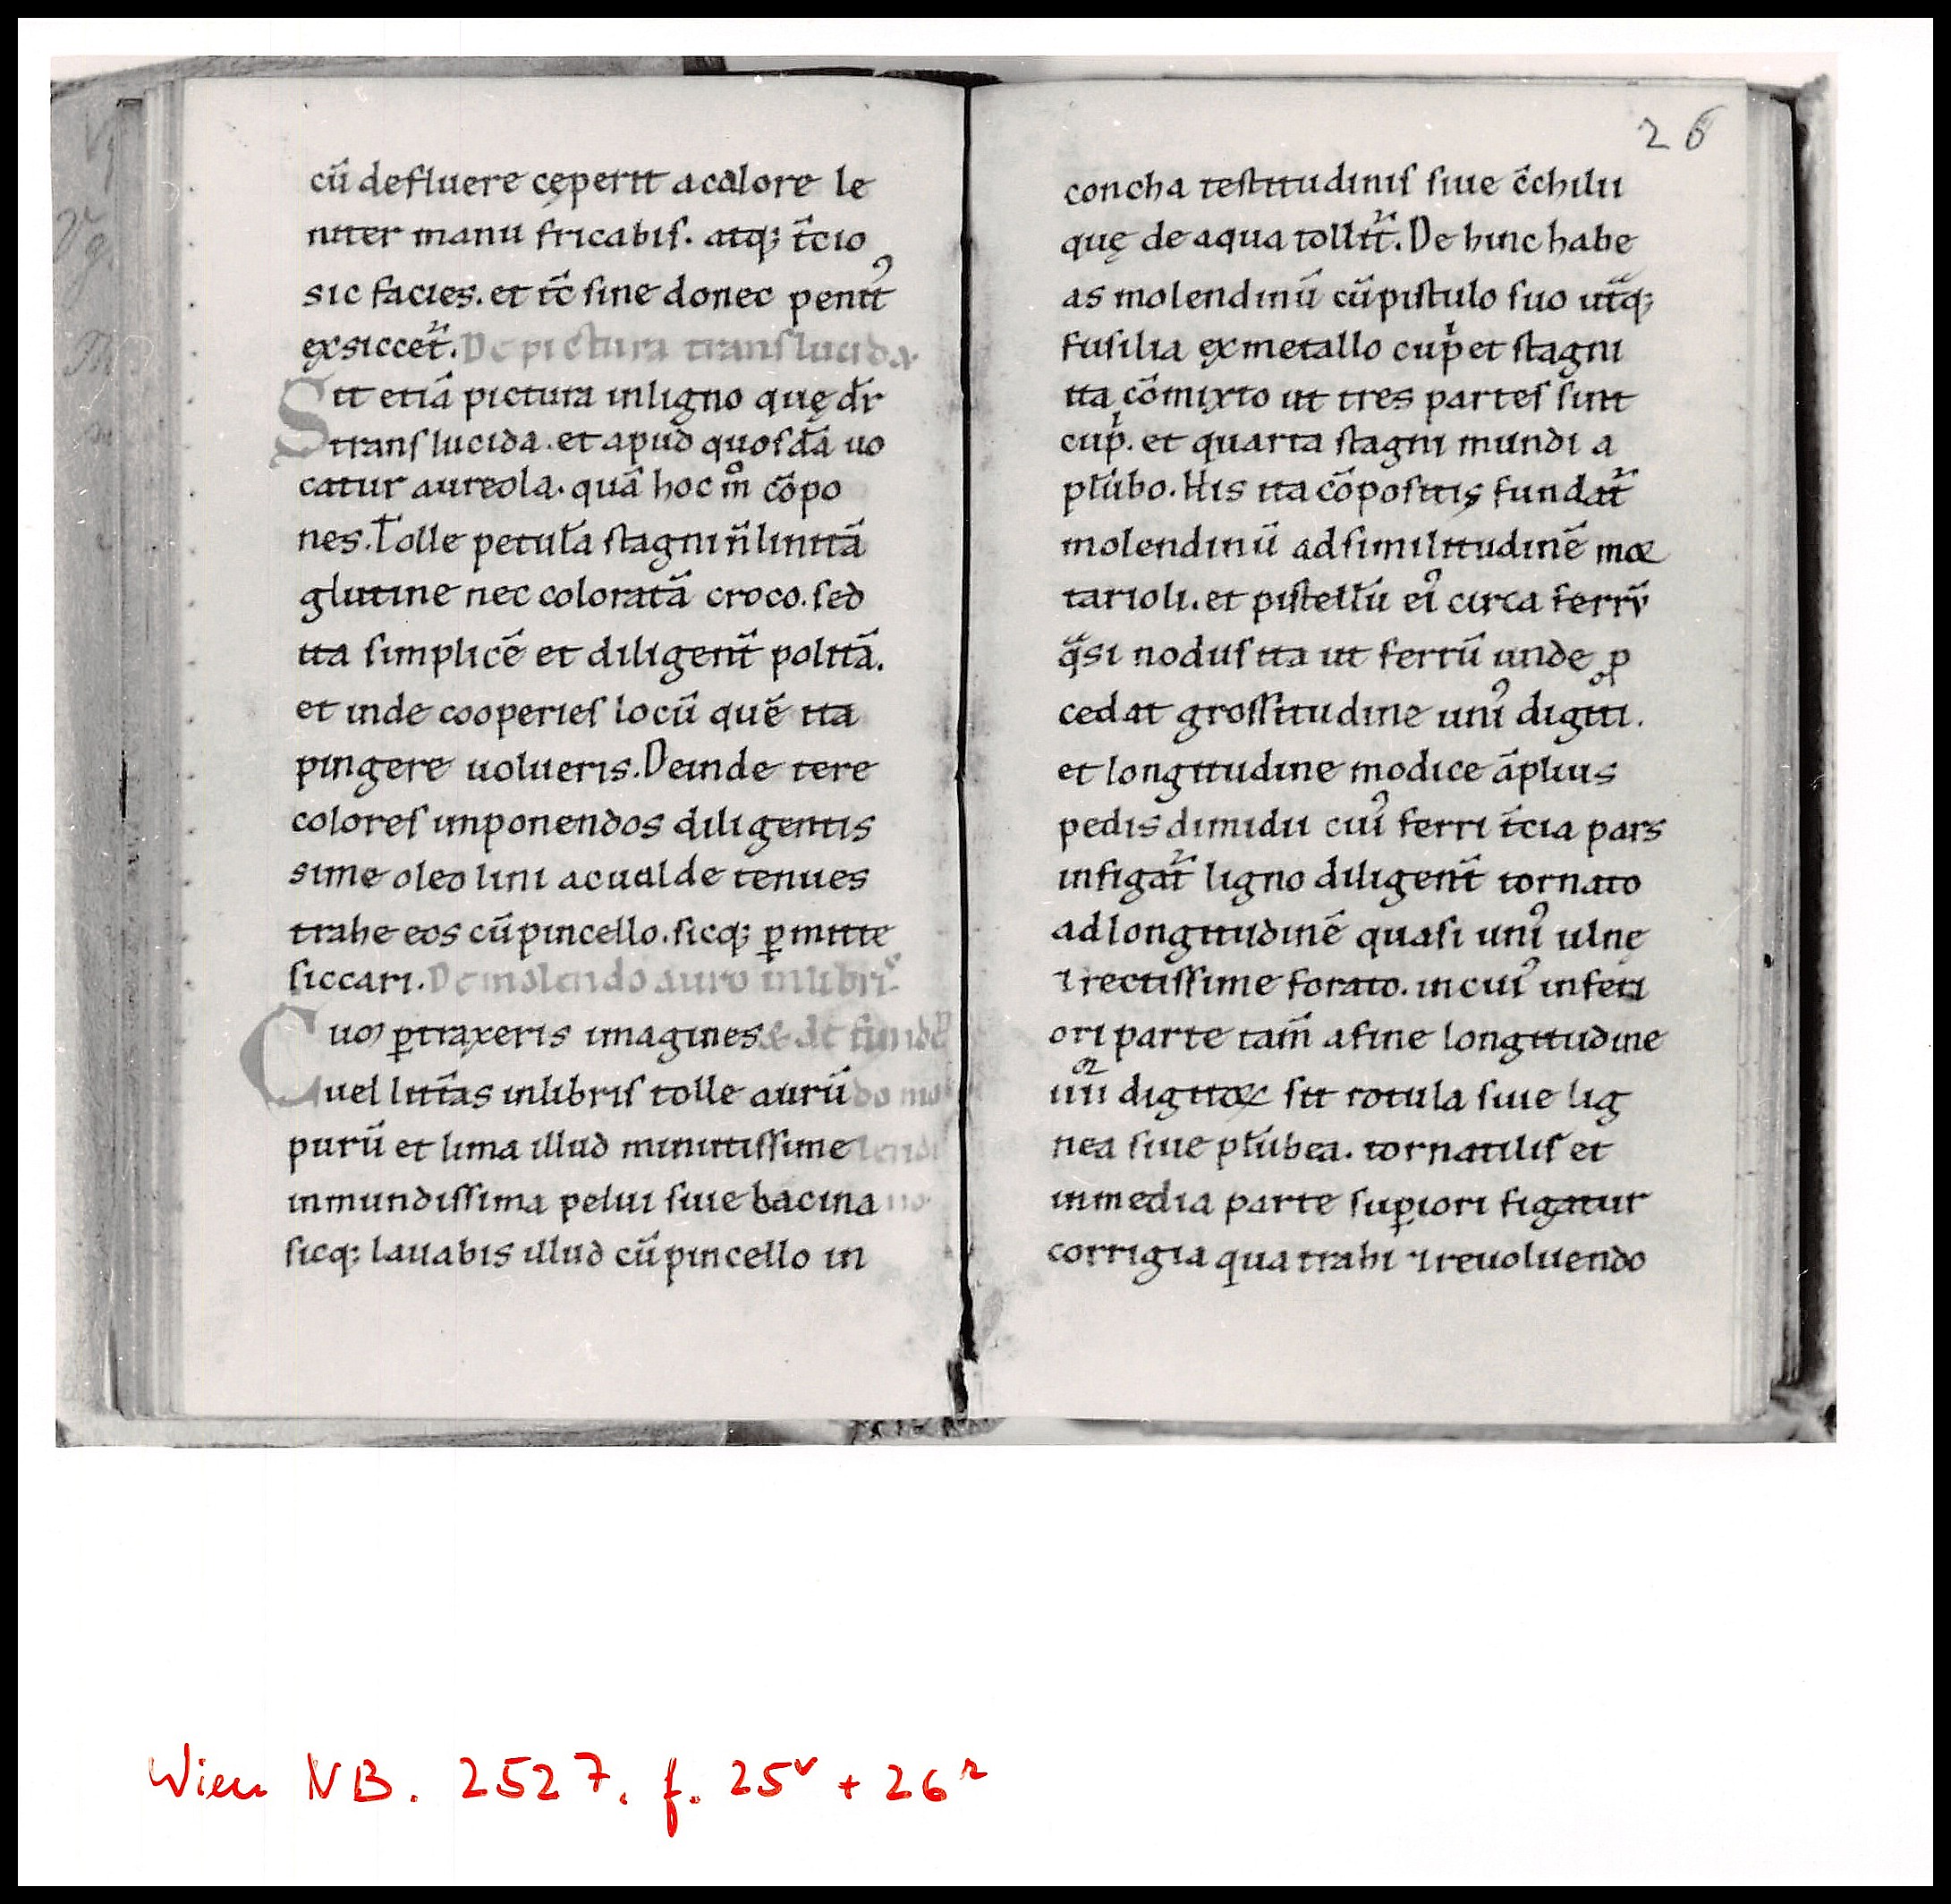 cū defluere cęperit a calore le
niter manu fricabis. atq; t̄cio
sic facies. et t̄c sine donec penit᷒
exsiccet᷑. De pictura translucida.
Sit etiā pictura in ligno quę dr̄
translucida. et apud quosdā uo
catur aureola. quā hoc m̊ cōpo
nes. Tolle petulā stagni n̄ linitā
glutine nec coloratā croco. sed
ita simplicē et diligent̄ politā.
et inde cooperies locū quē ita
pingere uolueris. Deinde tere
colores imponendos diligentis
sime oleo lini ac ualde tenues
trahe eos cū pincello. sicq; ꝑmitte
siccari. De molendo auro in libris
Cum ꝓtraxeris imagines & de funde
uel litt̄as in libris tolle aurū do mo
purū et lima illud minutissime lendi
in mundissima pelui siue bacina no.
sicq; lauabis illud cū pincello in
26
concha testitudinis siue c̄chilii
quę de aqua tollit᷑. De hinc habe
as molendinū cū pistulo suo utͣq;
fusilia ex metallo cupͥ et stagni
ita cōmixto ut tres partes sint
cupͥ. et quarta stagni mundi a
plūbo. His ita cōpositis fundat᷑
molendinū ad similitudinē mor
tarioli. et pistellū ei᷒ circa ferrū
qͣsi nodus ita ut ferrū unde ꝓ
cedat grossitudine uni᷒ digiti.
et longitudine modice āplius
pedis dimidii cui᷒ ferri t̄cia pars
infigat᷑ ligno diligent̄ tornato
ad longitudinē quasi uni᷒ ulnę
⁊ rectissime forato. in cui᷒ inferi
ori parte tam̄ a fine longitudine
iiiiᵒʳ digitoꝝ sit rotula siue lig
nea siue plūbea. tornatilis et
in media parte suꝑiori figatur
corrigia qua trahi ⁊ reuoluendo
Wien NB. 2527. f. 25ᵛ + 26ʳ